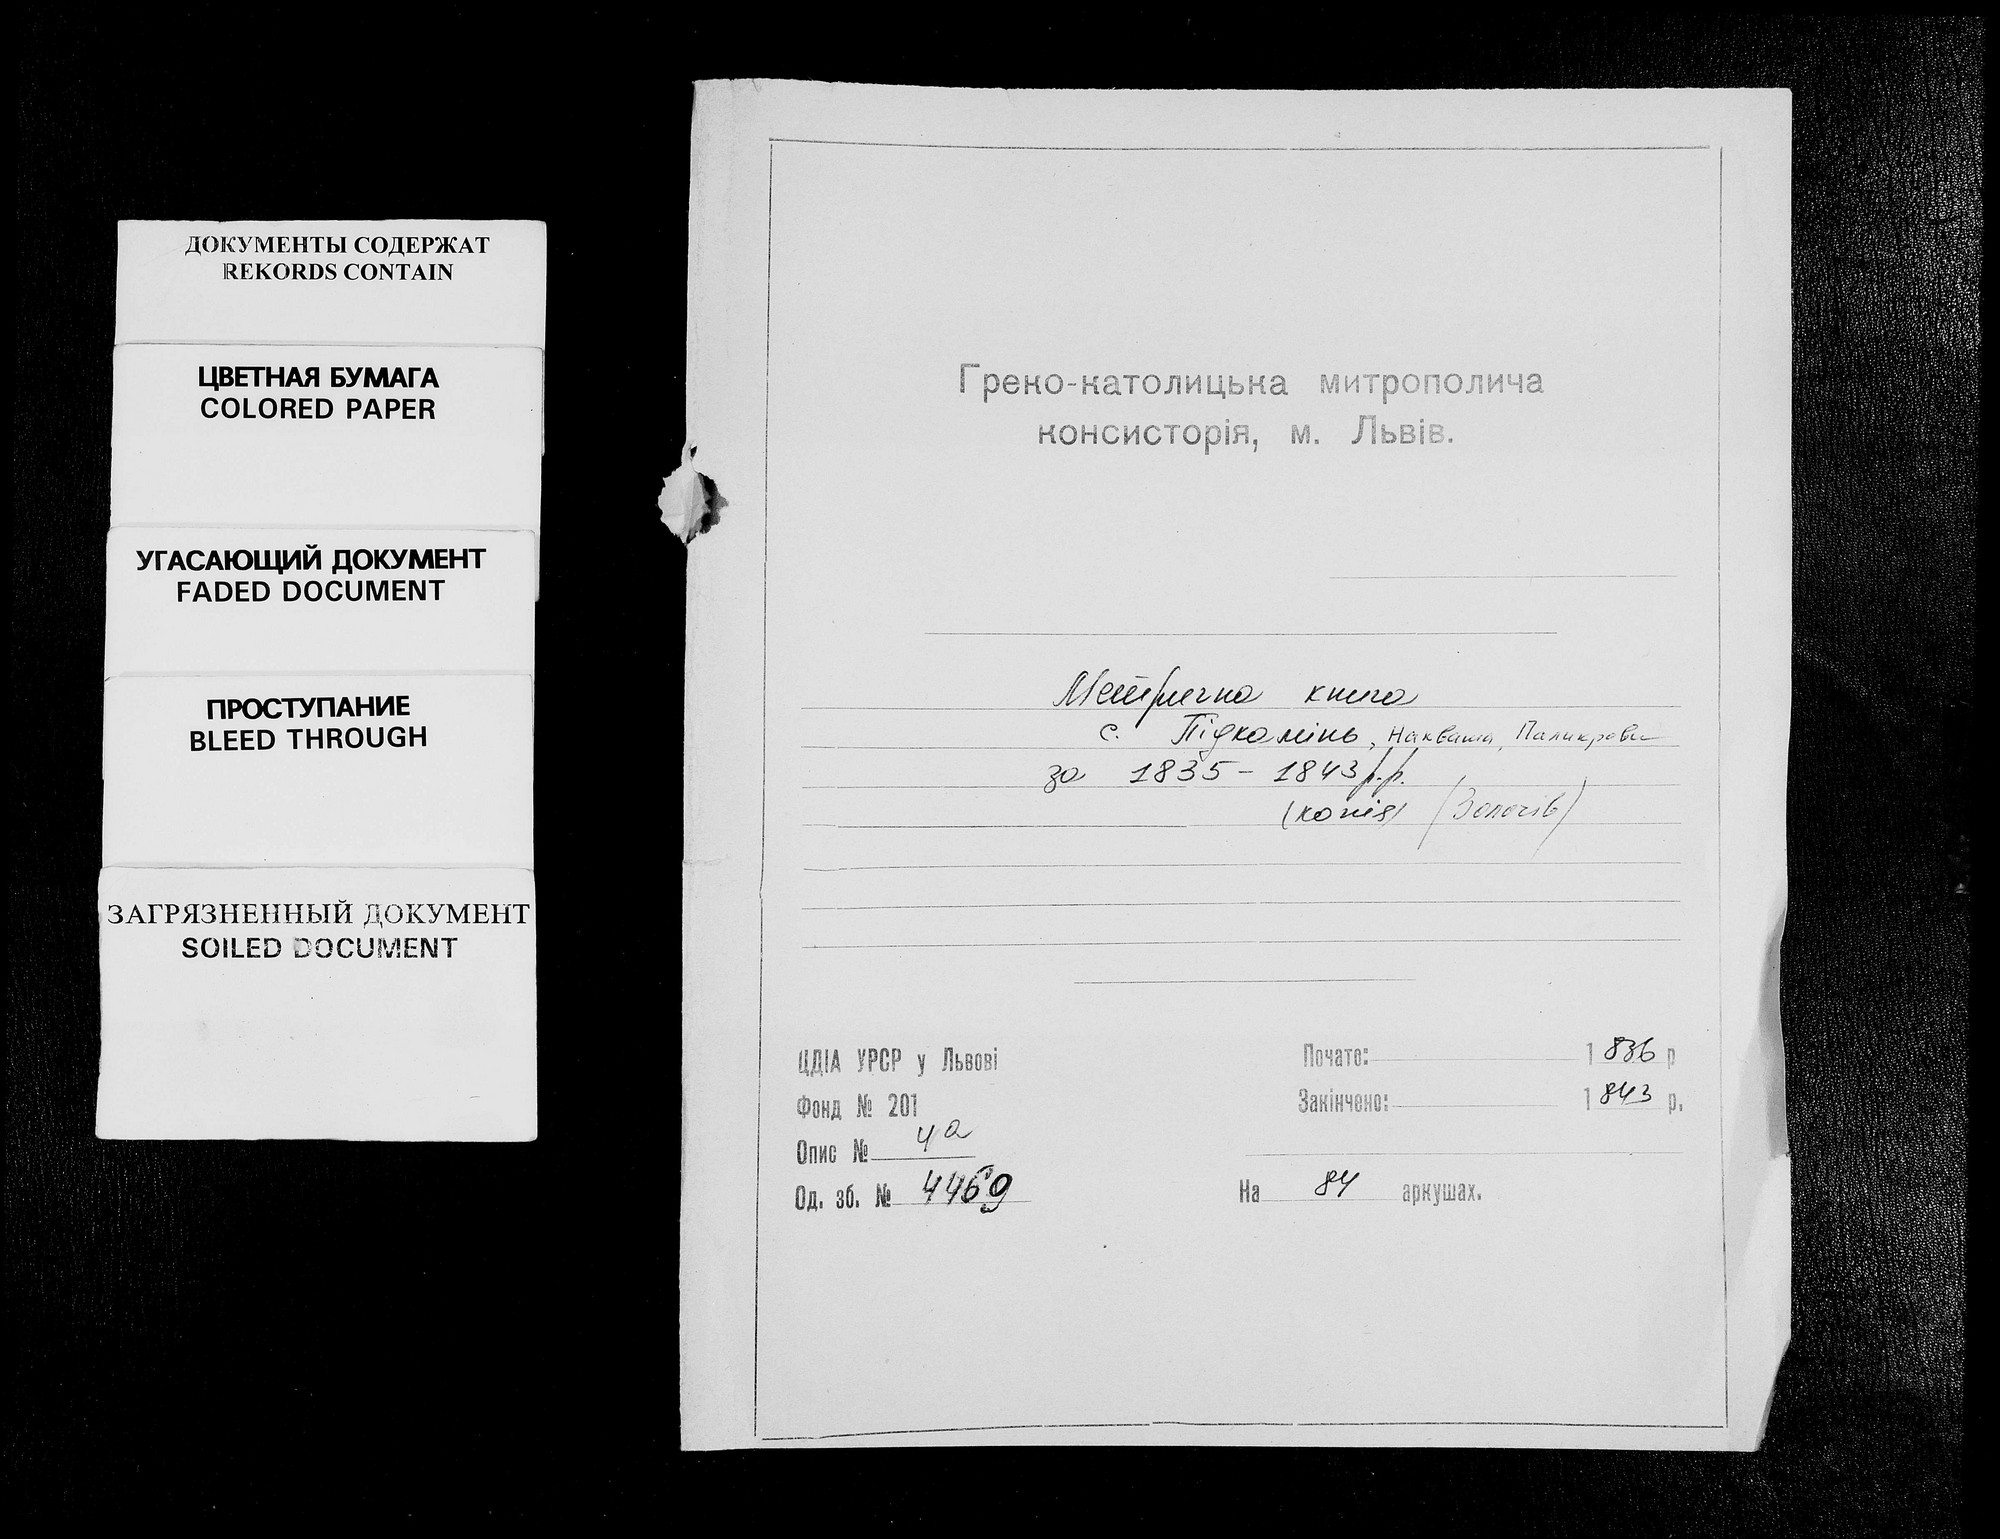 ДОКУМЕНТЫ СОДЕРЖАТ
REKORDS CONTAIN
ЦВЕТНАЯ БУМАГА
COLORED PAPER
УГАСАЮЩИЙ ДОКУМЕНТ
FADED DOCUMENT
ПРОСТУПАНИЕ
BLEED THROUGH
ЗАГРЯЗНЕННЫЙ ДОКУМЕНТ
SOILED DOCUMENT
Греко-католицька митрополича
консисторія, м. Львів.
Метрична книга
с. Підкамінь, Накваша, Паликрови
за 1835 - 1843 р.р.
(копія) (Золочів)
ЦДІА УРСР у Львові
Фонд № 201
Опис № 4а
Од. зб. № 4469
Почато: 1836 р
Закінчено: 1843 р.
На 84 аркушах.